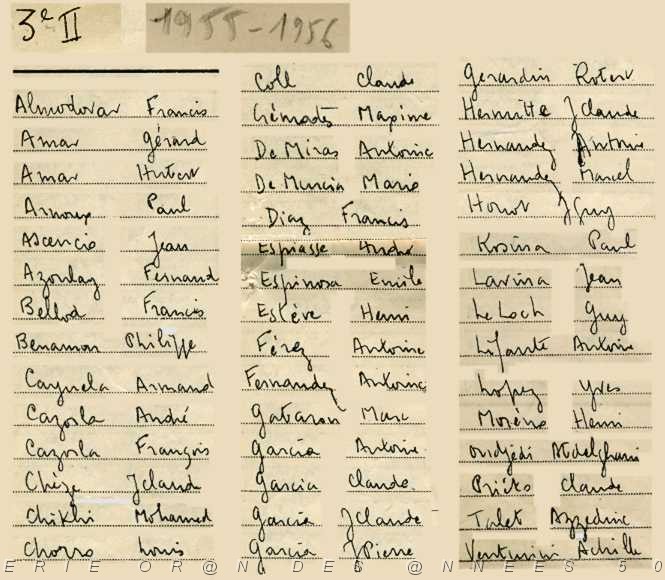 3e II 1955-1956
Almodovar Francis
Amar Gérard
Amar Hubert
Arnoux Paul
Ascencio Jean
Azoulay Fernand
Bellod Francis
Benamon Philippe
Cayuela Armand
Cazorla André
Cazorla François
Chèze JClaude
Chikhi Mohamed
Chorro Louis
Coll Claude
Maxime
De Miras Antoine
De Murcia Mario
Diaz Francis
Espiasse André
Espinosa Emile
Estève Henri
Férez Antoine
Fernandez Antoine
Gatcaron Marc
Garcia Antoine
Garcia Claude.
Garcia JClaude
Garcia JPierre
Gerardin Robert
Hermitte JClaude
Hernandez Antoine
Hernandez Marcel
JGuy
Kosina Paul
Lavina Jean
Le Loch Guy
Lifante Antoine
Lopez Yves
Moréno Henri
Oudjédi Abdelghani
Priéto Claude
Talet Azzedine
Venturini Achille